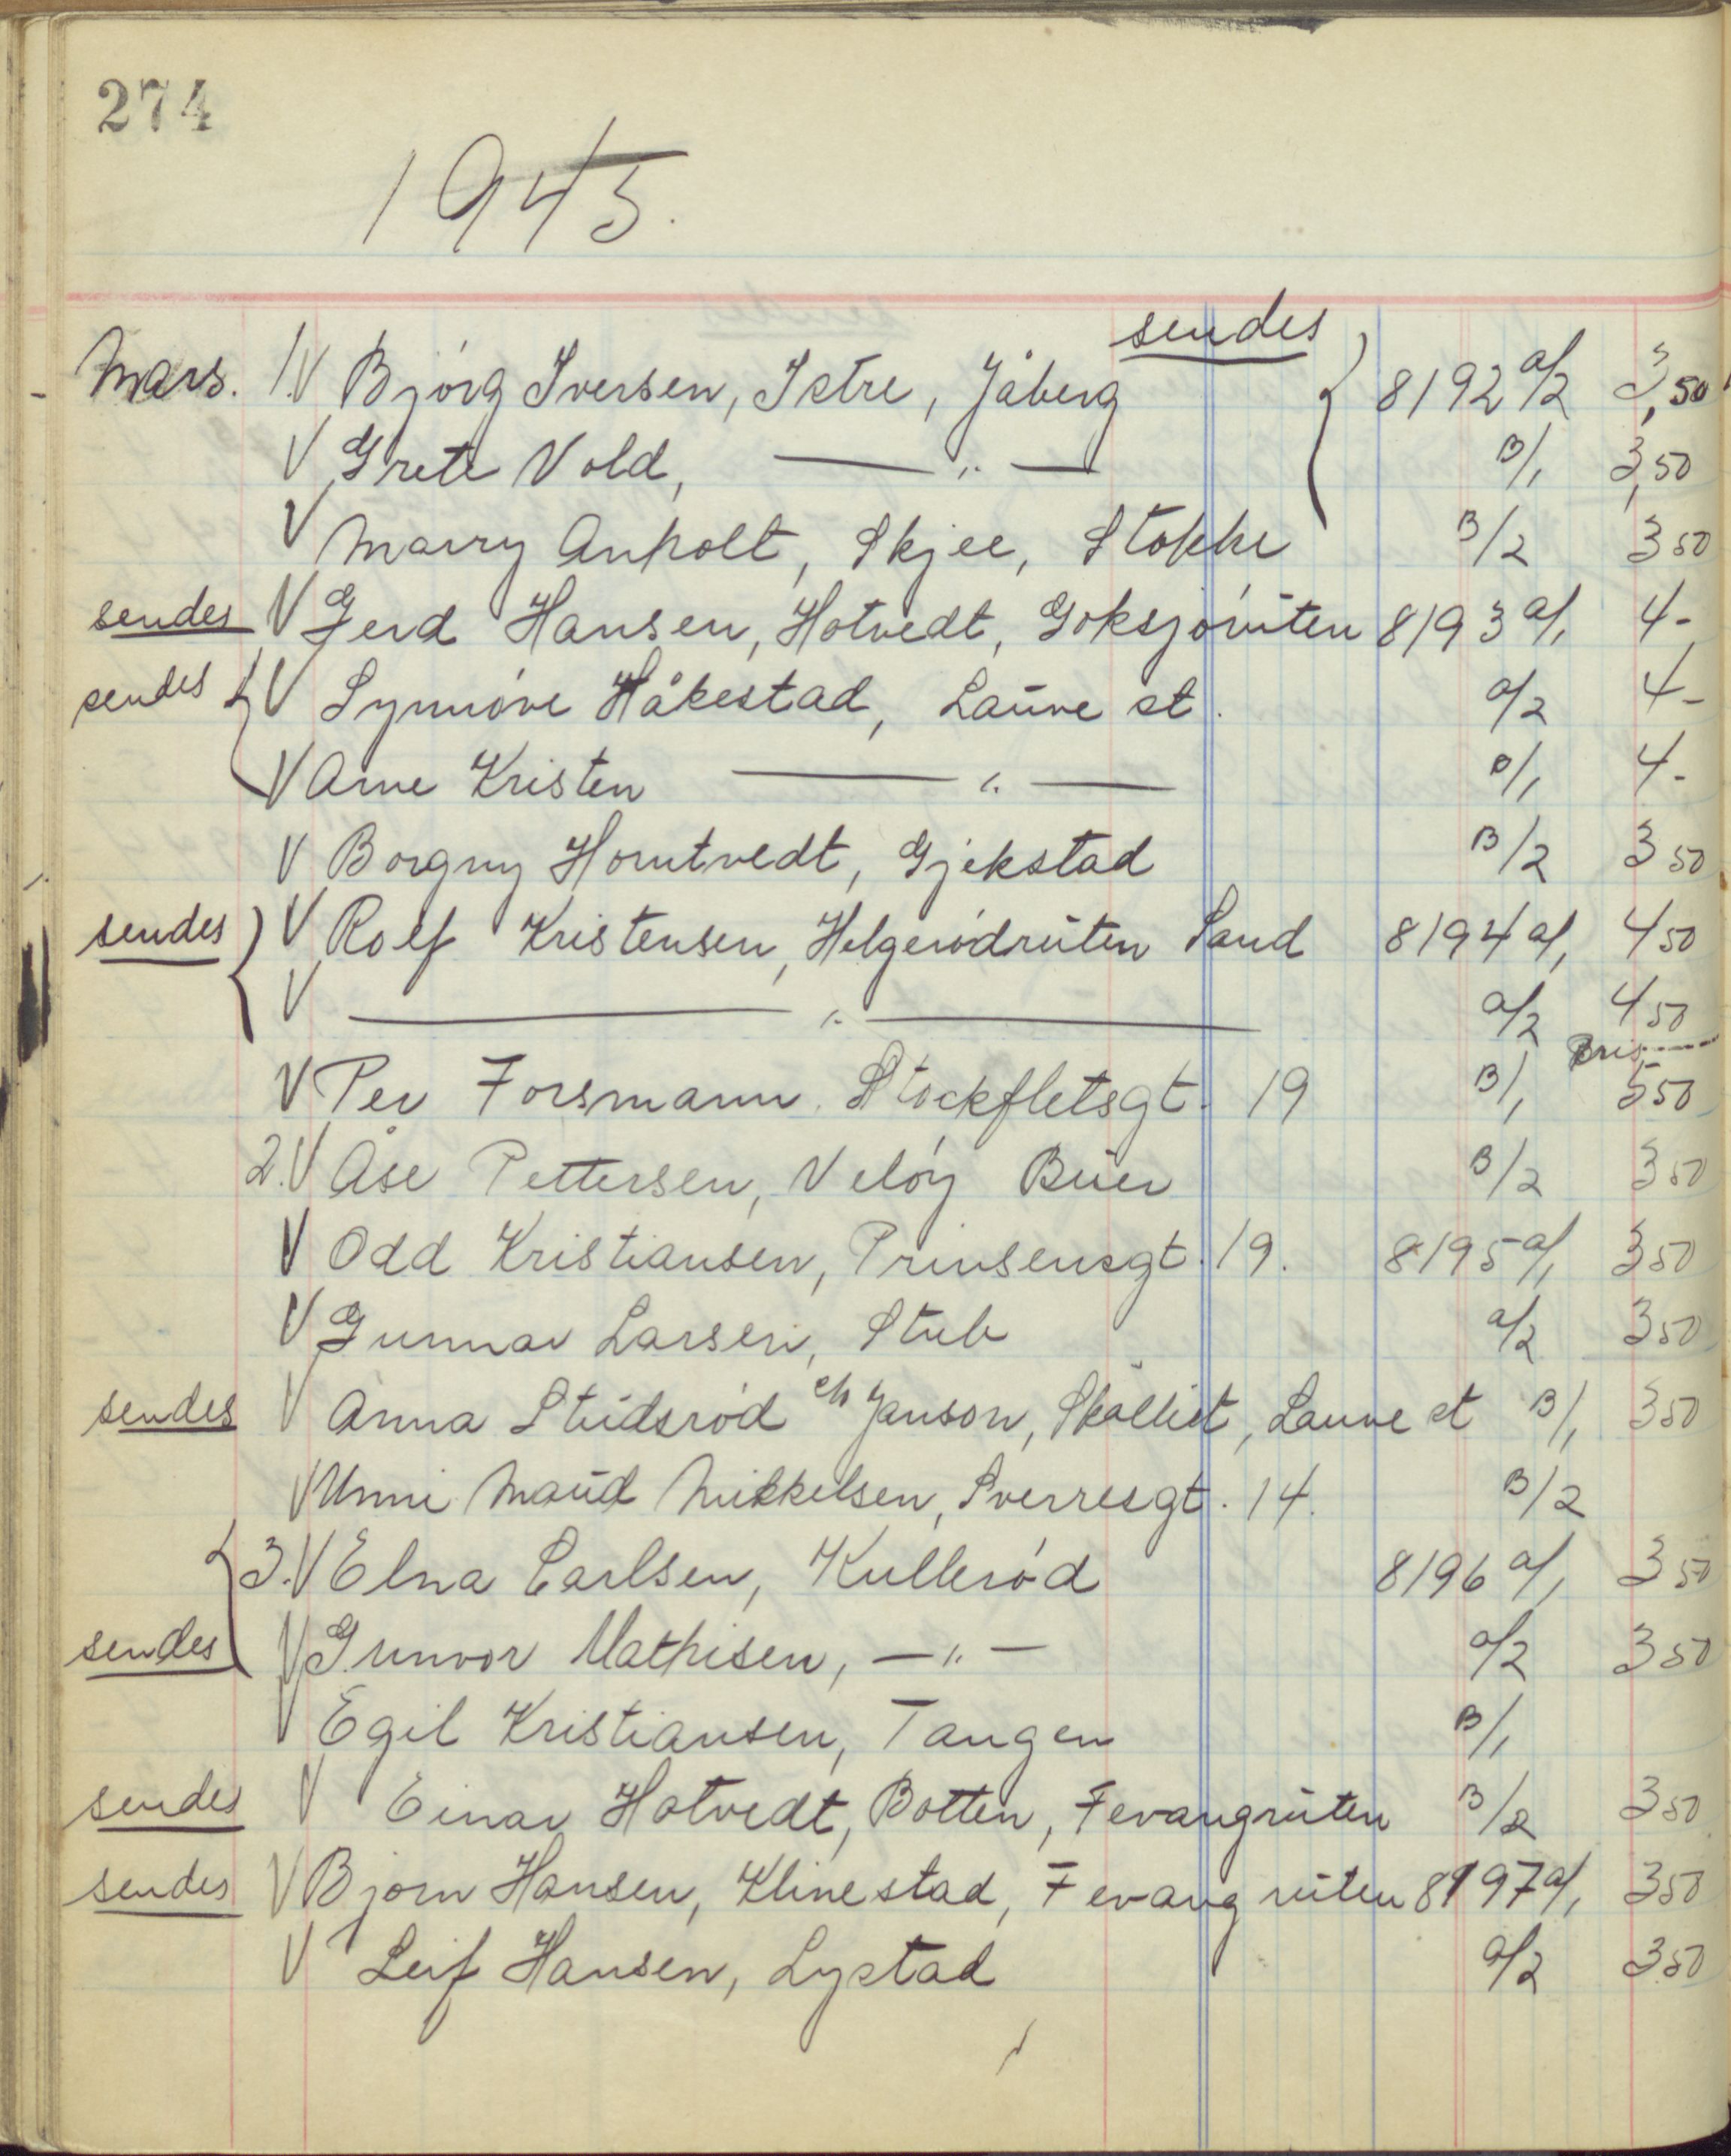 274
1945.
sendes
Mars. 1. V Bjørg Iversen, Istre, Jåberg 8192 a/2 3,50
V Grete Vold, — " — B/1 3,50
V Marry Anholt, Skjee, Stokke B/2 3 50
sendes V Gerd Hansen, Hotvedt, Goksjøruten 8193 a/1 4-
sendes V Synnøve Håkestad, Lauve st. a/2 4-
V Arne Kristen — " — B/1 4-
V Borgny Horntvedt, Gjekstad B/2 3 50
sendes V Rolf Kristensen, Helgerødruten Sand 8194 a/1 4 50
V — " — a/2 4 50
V Per Forsmann. Stockfletsgt. 19 B/1 5 50
2. V Åse Pettersen, Veløy Buer B/2 3 50
V Odd Kristiansen, Prinsensgt. 19. 8195 a/1 3 50
V Gunnar Larsen, Stub a/2 3 50
sendes V Anna Stidsrød c/o Janson, Skallist, Lauve st B/1 3 50
V Unni Maud Mikkelsen, Sverresgt. 14. B/2
3. V Elna Carlsen, Kullerød 8196 a/1 3 50
sendes V Gunvor Mathisen, — " — a/2 3 50
V Egil Kristiansen, Tangen B/1
sendes V Einar Hotvedt, Botten, Fevangruten B/2 3 50
sendes V Bjørn Hansen, Klinestad, Fevangruten 8197 a/1 3 50
V Leif Hansen, Lystad a/2 3 50